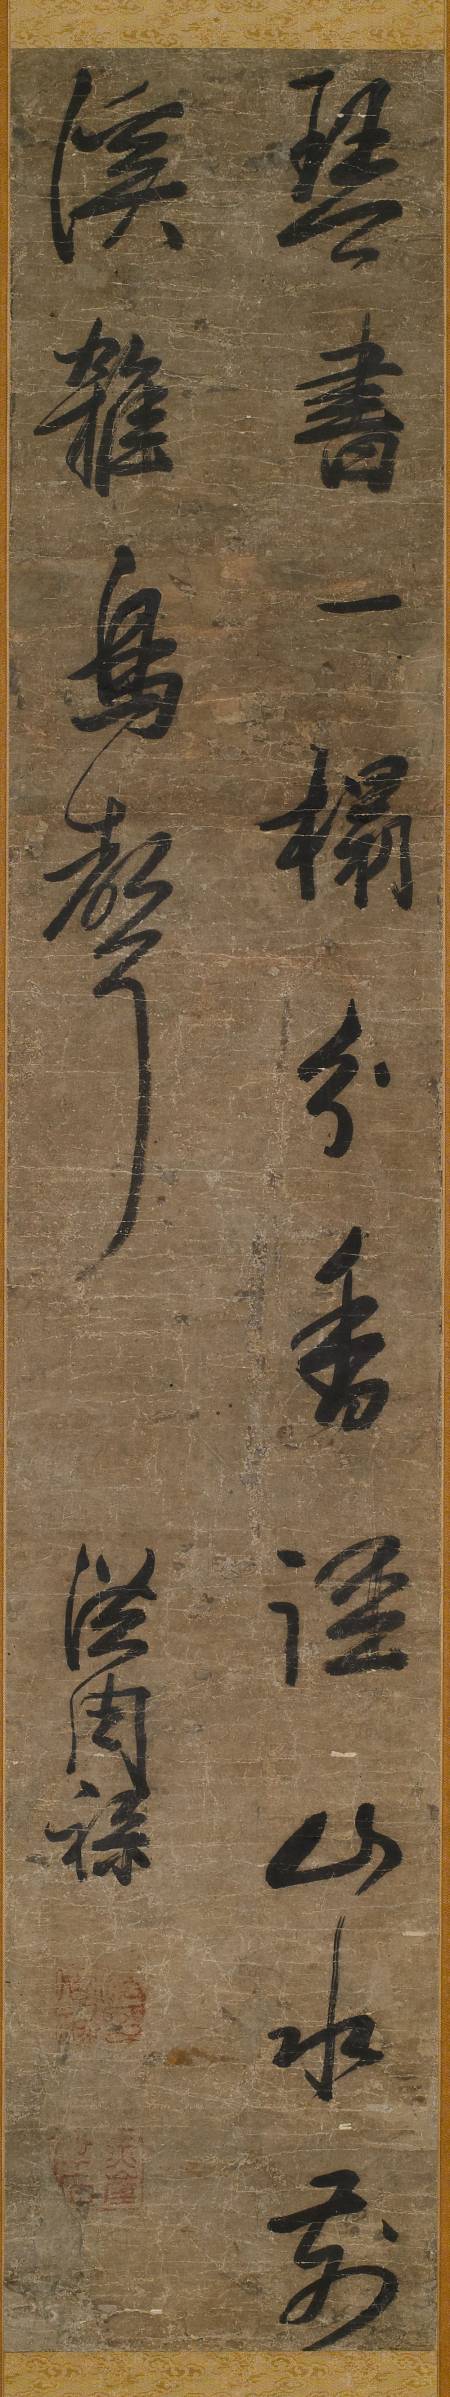 琴書一榻分香山水前
溪雜鳥聲
洪周祿